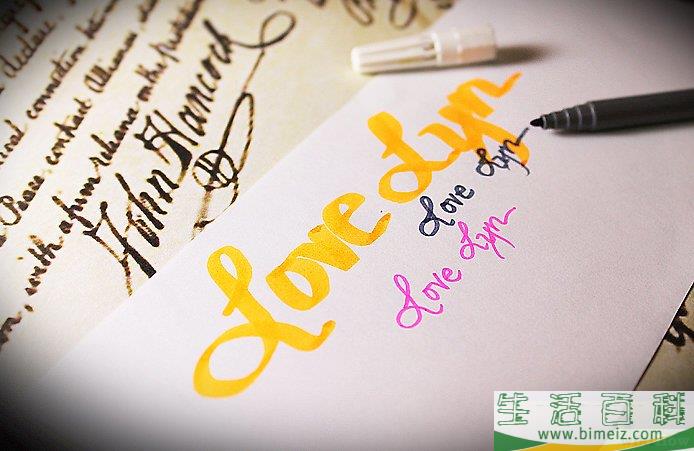 declare, 
and connection between
Peace, contract Alliances,
with a firm reliance on the protection
John Hancock
Love Lyn
Love Lyn
Love Lyn
生活百科
www.bimeiz.com